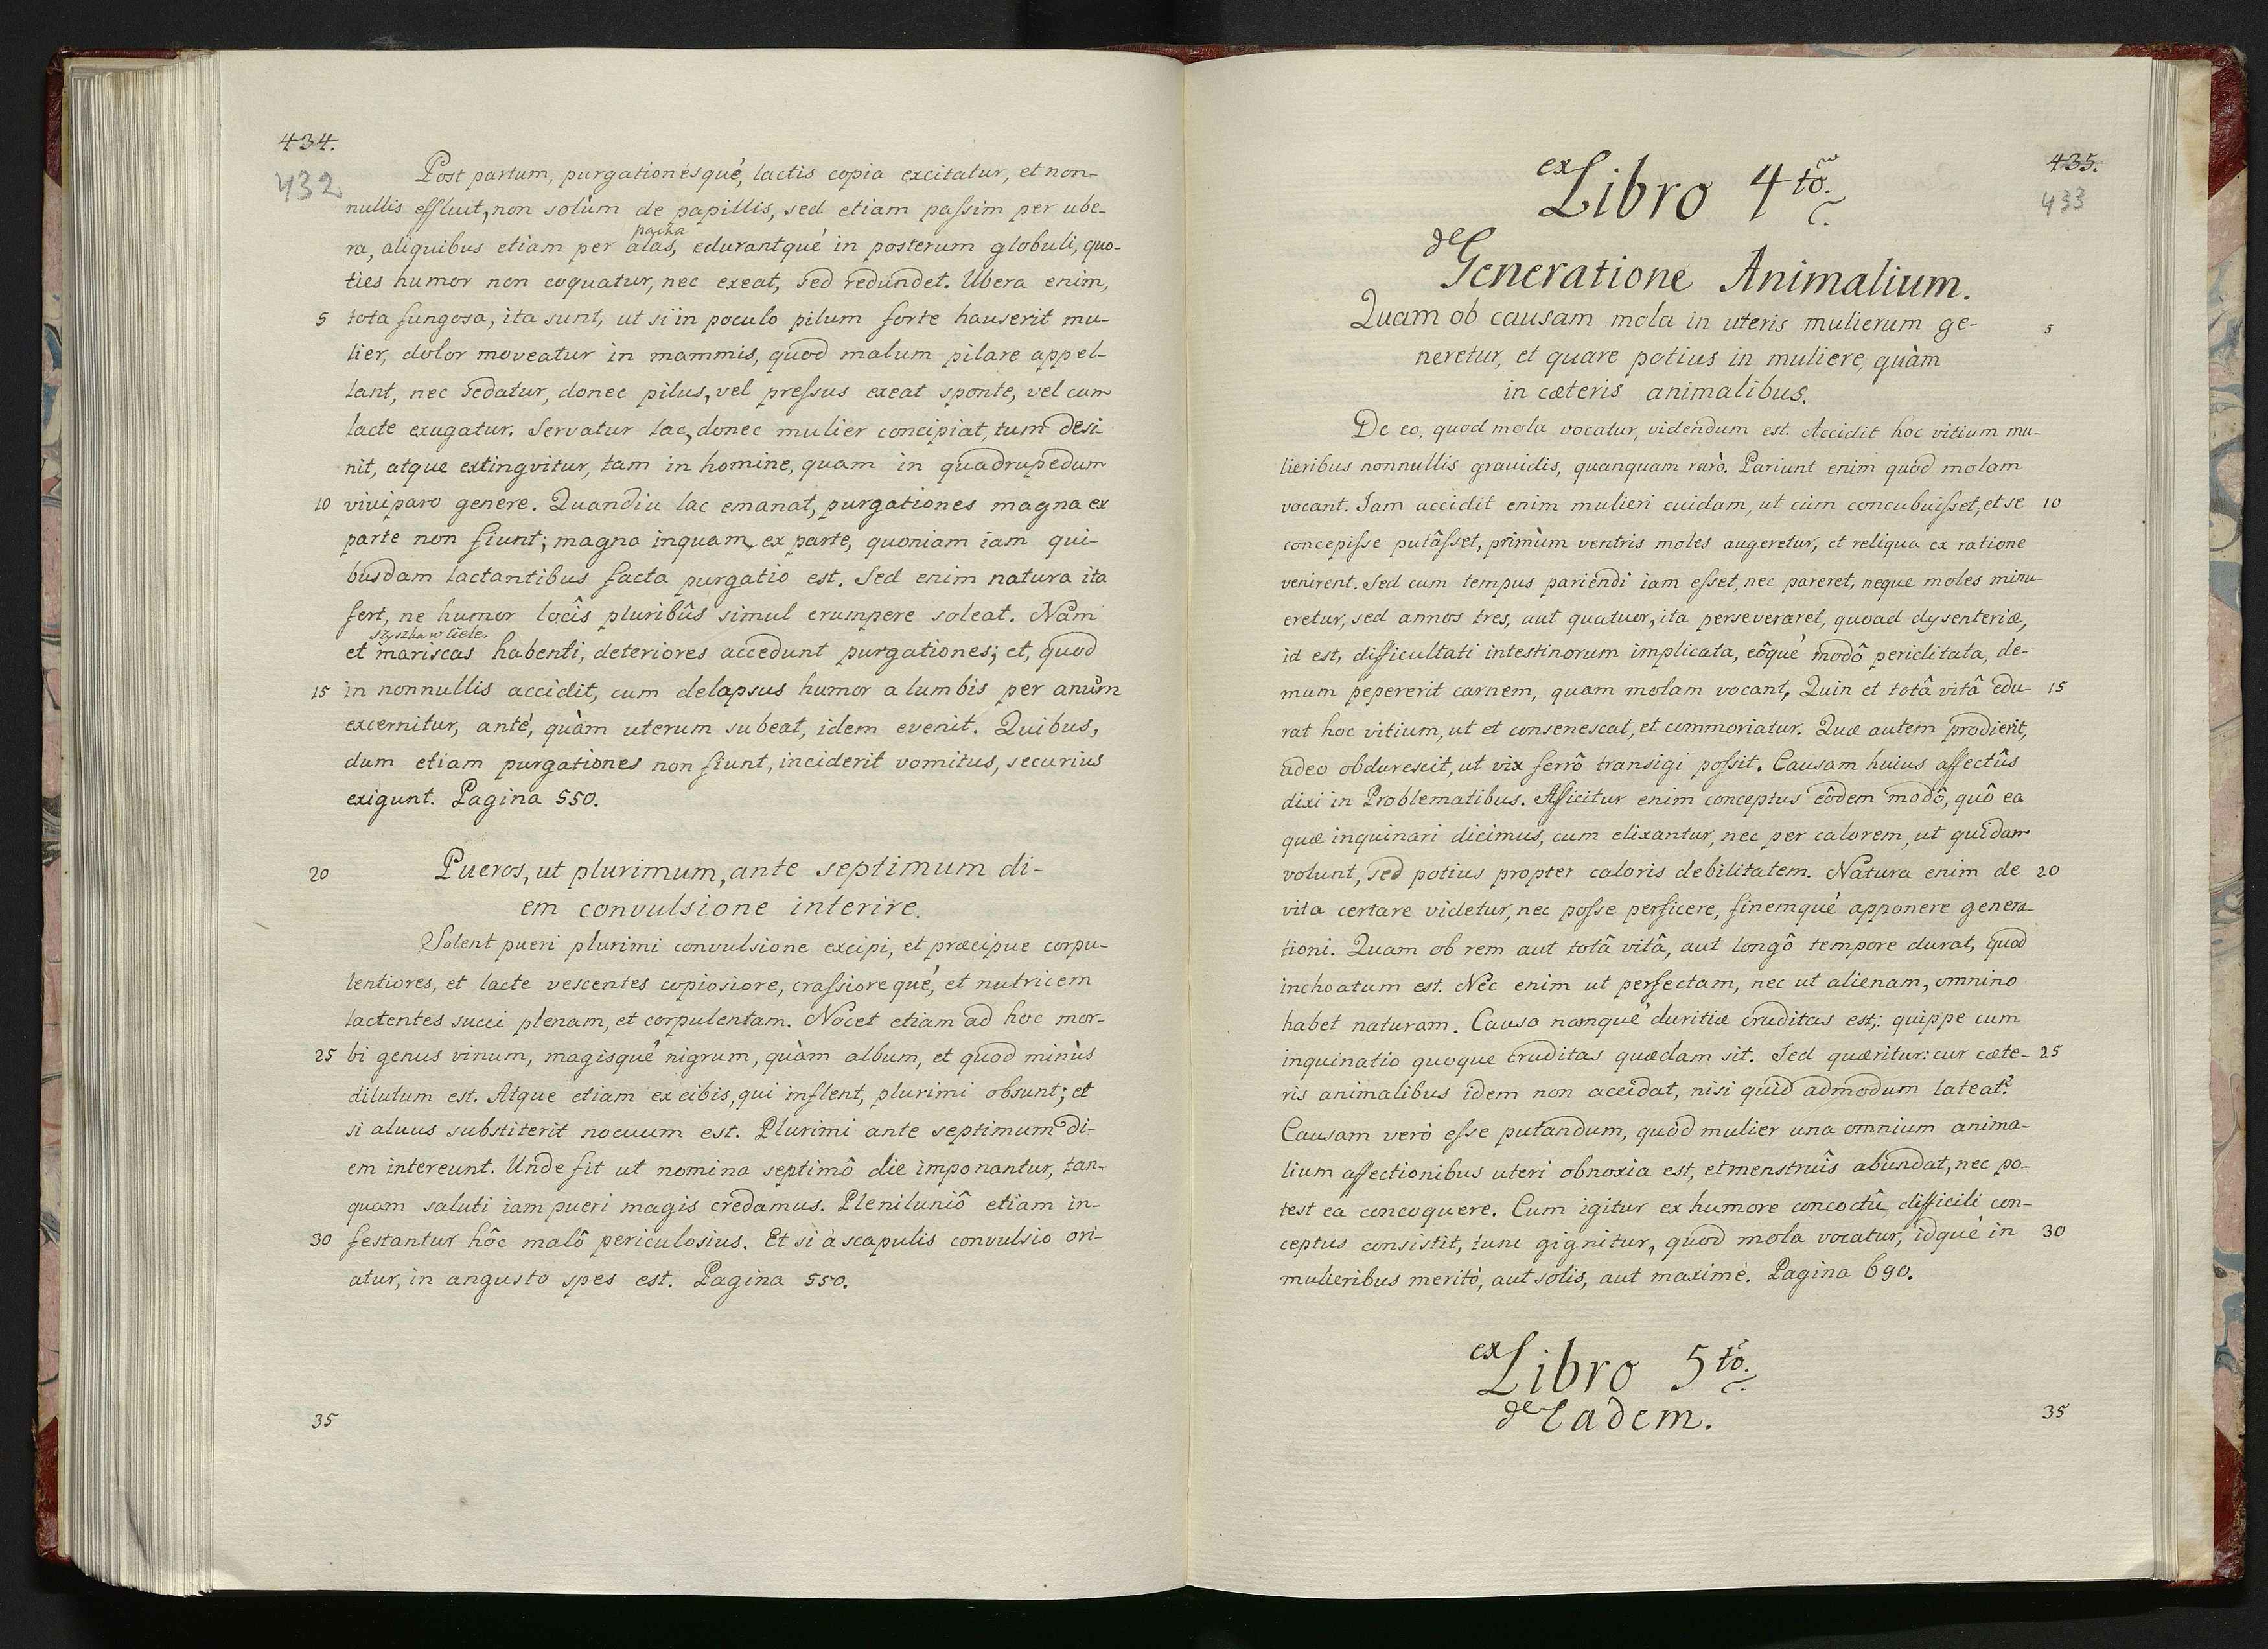 434.
432
Post partum, purgationésqué, lactis copia excitatur, et non-
nullis effluit, non solùm de papillis, sed etiam paſsim per ube-
pacha
ra, aliquibus etiam per alas, edurantqué in posterum globuli, quo-
ties humor non coquatur, nec exeat, sed redundet. Ubera enim,
5 tota fungosa, ita sunt, ut si in poculo pilum forte hauserit mu-
lier, dolor moveatur in mammis, quod malum pilare appel-
lant, nec sedatur, donec pilus, vel preſsus exeat sponte, vel cum
lacte exugatur. Servatur lac, donec mulier concipiat, tum desi
nit, atque extingvitur, tam in homine, quam in quadrupedum
10 viviparo genere. Quandiu lac emanat, purgationes magna ex
parte non fiunt; magna inquam ex parte, quoniam iam qui-
busdam lactantibus facta purgatio est. Sed enim natura ita
fert, ne humor locîs pluribûs simul erumpere soleat. Nam
szyszka w ciele.
et mariscas habenti, deteriores accedunt purgationes; et, quod
15 in nonnullis accidit, cum delapsus humor a lumbis per anum
excernitur, anté, quàm uterum subeat, idem evenit. Quibus,
dum etiam purgationes non fiunt, inciderit vomitus, securius
exigunt. Pagina 550.
20 Pueros, ut plurimum, ante septimum di-
em convulsione interire.
Solent pueri plurimi convulsione excipi, et præcipue corpu-
lentiores, et lacte vescentes copiosiore, craſsiorequé, et nutricem
lactentes succi plenam, et corpulentam. Nocet etiam ad hoc mor-
25 bi genus vinum, magisqué nigrum, quàm album, et quod minùs
dilutum est. Atque etiam ex cibis, qui inflent, plurimi obsunt; et
si aluus substiterit nocuum est. Plurimi ante septimum di-
em intereunt. Unde fit ut nomina septimô die imponantur, tan-
quam saluti iam pueri magis credamus. Pleniluniô etiam in-
30 festantur hôc malô periculosius. Et si à scapulis convulsio ori-
atur, in angusto spes est. Pagina 550.
35
435.
433
ex Libro 4to.
de Generatione Animalium.
Quam ob causam mola in uteris mulierum ge- 5
neretur, et quare potius in muliere, quàm
in cæteris animalibus.
De eo, quod mola vocatur, videndum est. Accidit hoc vitium mu-
lieribus nonnullis grauidis, quanquam rarò. Pariunt enim quod molam
vocant. Iam accidit enim mulieri cuidam, ut cùm concubuiſset, et se 10
concepiſse putâſset, primùm ventris moles augeretur, et reliqua ex ratione
venirent. Sed cum tempus pariendi iam eſset, nec pareret, neque moles minu-
eretur, sed annos tres, aut quatuor, ita perseveraret, quoad dysenteriæ,
id est, difficultati intestinorum implicata, eôqué modô periclitata, de-
mum pepererit carnem, quam molam vocant. Quin et totâ vitâ edu- 15
rat hoc vitium, ut et consenescat, et commoriatur. Quæ autem prodierit,
adeo obdurescit, ut vix ferrô transigi poſsit. Causam huius affectûs
dixi in Problematibus. Afficitur enim conceptus eôdem modô, quô ea
quæ inquinari dicimus, cum elixantur, nec per calorem, ut quidam
volunt, sed potius propter caloris debilitatem. Natura enim de 20
vita certare videtur, nec poſse perficere, finemqué apponere genera-
tioni. Quam ob rem aut totâ vitâ, aut longô tempore durat, quod
inchoatum est. Nec enim ut perfectam, nec ut alienam, omnino
habet naturam. Causa namqué duritiæ cruditas est; quippe cum
inquinatio quoque cruditas quædam sit. Sed quæritur: cur cæte- 25
ris animalibus idem non accidat, nisi quid admodum lateat?
Causam verò eſse putandum, quòd mulier una omnium anima-
lium affectionibus uteri obnoxia est, et menstruîs abundat, nec po-
test ea concoquere. Cum igitur ex humore concoctû difficili con-
ceptus consistit, tunc gignitur, quod mola vocatur, idqué in 30
mulieribus meritò, aut solis, aut maximè. Pagina 690.
ex Libro 5to.
de Eadem. 35